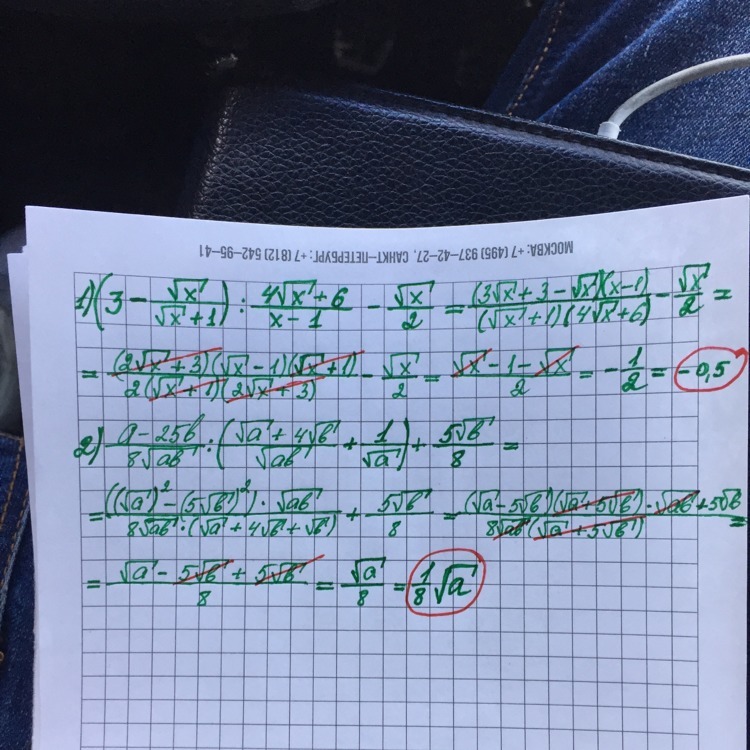 МОСКВА: +7 (495) 937-42-27, САНКТ-ПЕТЕРБУРГ: +7 (812) 542-95-41
1) (3 - √x/(√x + 1)) : (4√x + 6)/(x - 1) - √x/2 = (3√x + 3 - √x)(x - 1)/((√x + 1)(4√x + 6)) - √x/2 =
= (2√x + 3)(√x - 1)(√x + 1)/(2(√x + 1)(2√x + 3)) - √x/2 = (√x - 1 - √x)/2 = -1/2 = -0,5
2) (a - 25b)/(8√ab) : ((√a + 4√b)/√ab + 1/√a) + 5√b/8 =
= ((√a)² - (5√b)²) · √ab/(8√ab · (√a + 4√b + √b)) + 5√b/8 = (√a - 5√b)(√a + 5√b) · √ab + 5√b/(8√ab (√a + 5√b)) =
= (√a - 5√b + 5√b)/8 = √a/8 = 1/8 √a